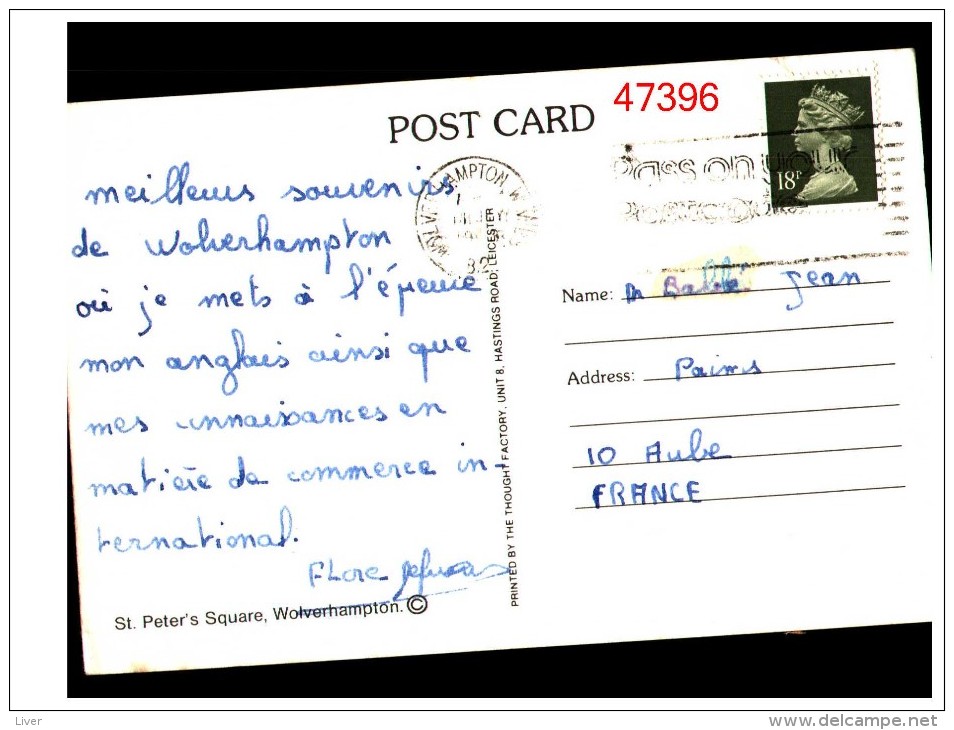 POST CARD
47396
WOLVERHAMPTON W.
Pass on your
18P
meilleurs souvenirs
de Wolverhampton
où je mets à l'épreuve
mon anglais ainsi que
mes connaissances en
matière de commerce in-
ternational.
Flore
St. Peter's Square, Wolverhampton. ©
PRINTED BY THE THOUGHT FACTORY, UNIT 8, HASTINGS ROAD, LEICESTER
Name: Jean
Address:
10 Aube
FRANCE
Liver
www.delcampe.net